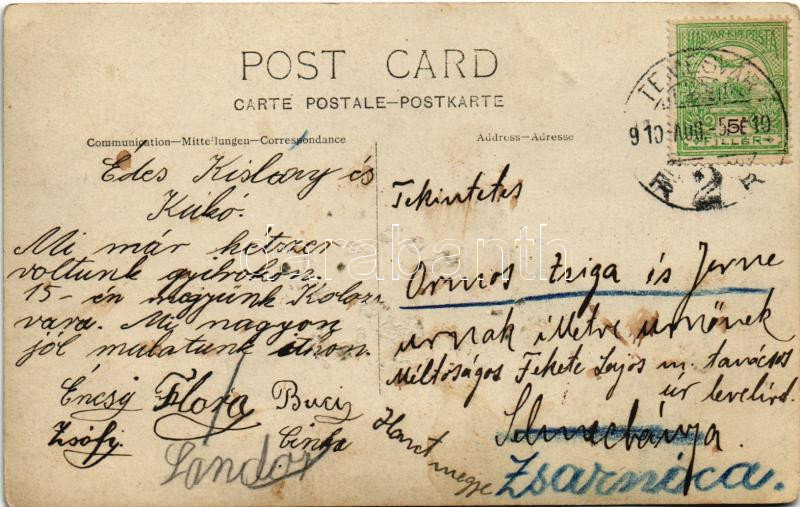 POST CARD
CARTE POSTALE—POSTKARTE
Communication—Mitteilungen—Correspondance
Address—Adresse
MAGYAR KIR. POSTA
5
FILLÉR
TEMESVÁR
910 AUG. 5
2
Édes Kislány és
Kukó.
Mi már hétszer
voltunk
15-én megyünk Kolozs
várra. Mi nagyon
jól mulatunk itthon.
Éncsy Flóra Buci
Zsófi. Cinka
Sándor
Tekintetes
Ormos Zsiga és Jenne
urnak illetve urnőnek
Méltóságos Fekete Lajos m. tanácsos
úr levelivel.
Selmecbánya.
Hont megye
Zsarnóca.
darabanth